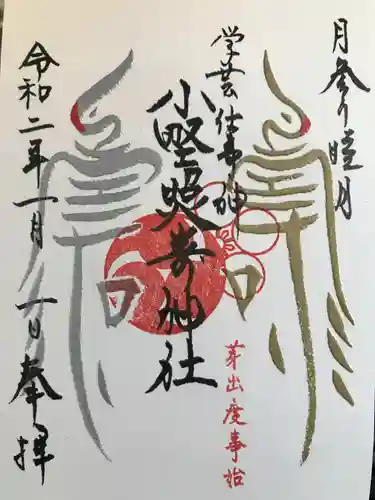 月参り睦月
学芸仕事の神
小野照崎神社
芽出度事始
令和二年一月一日奉拝